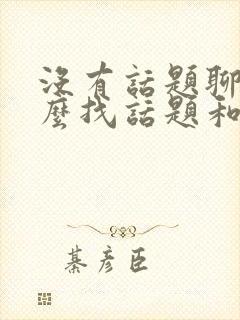 没有話題聊
麼找話題和
綦彥臣